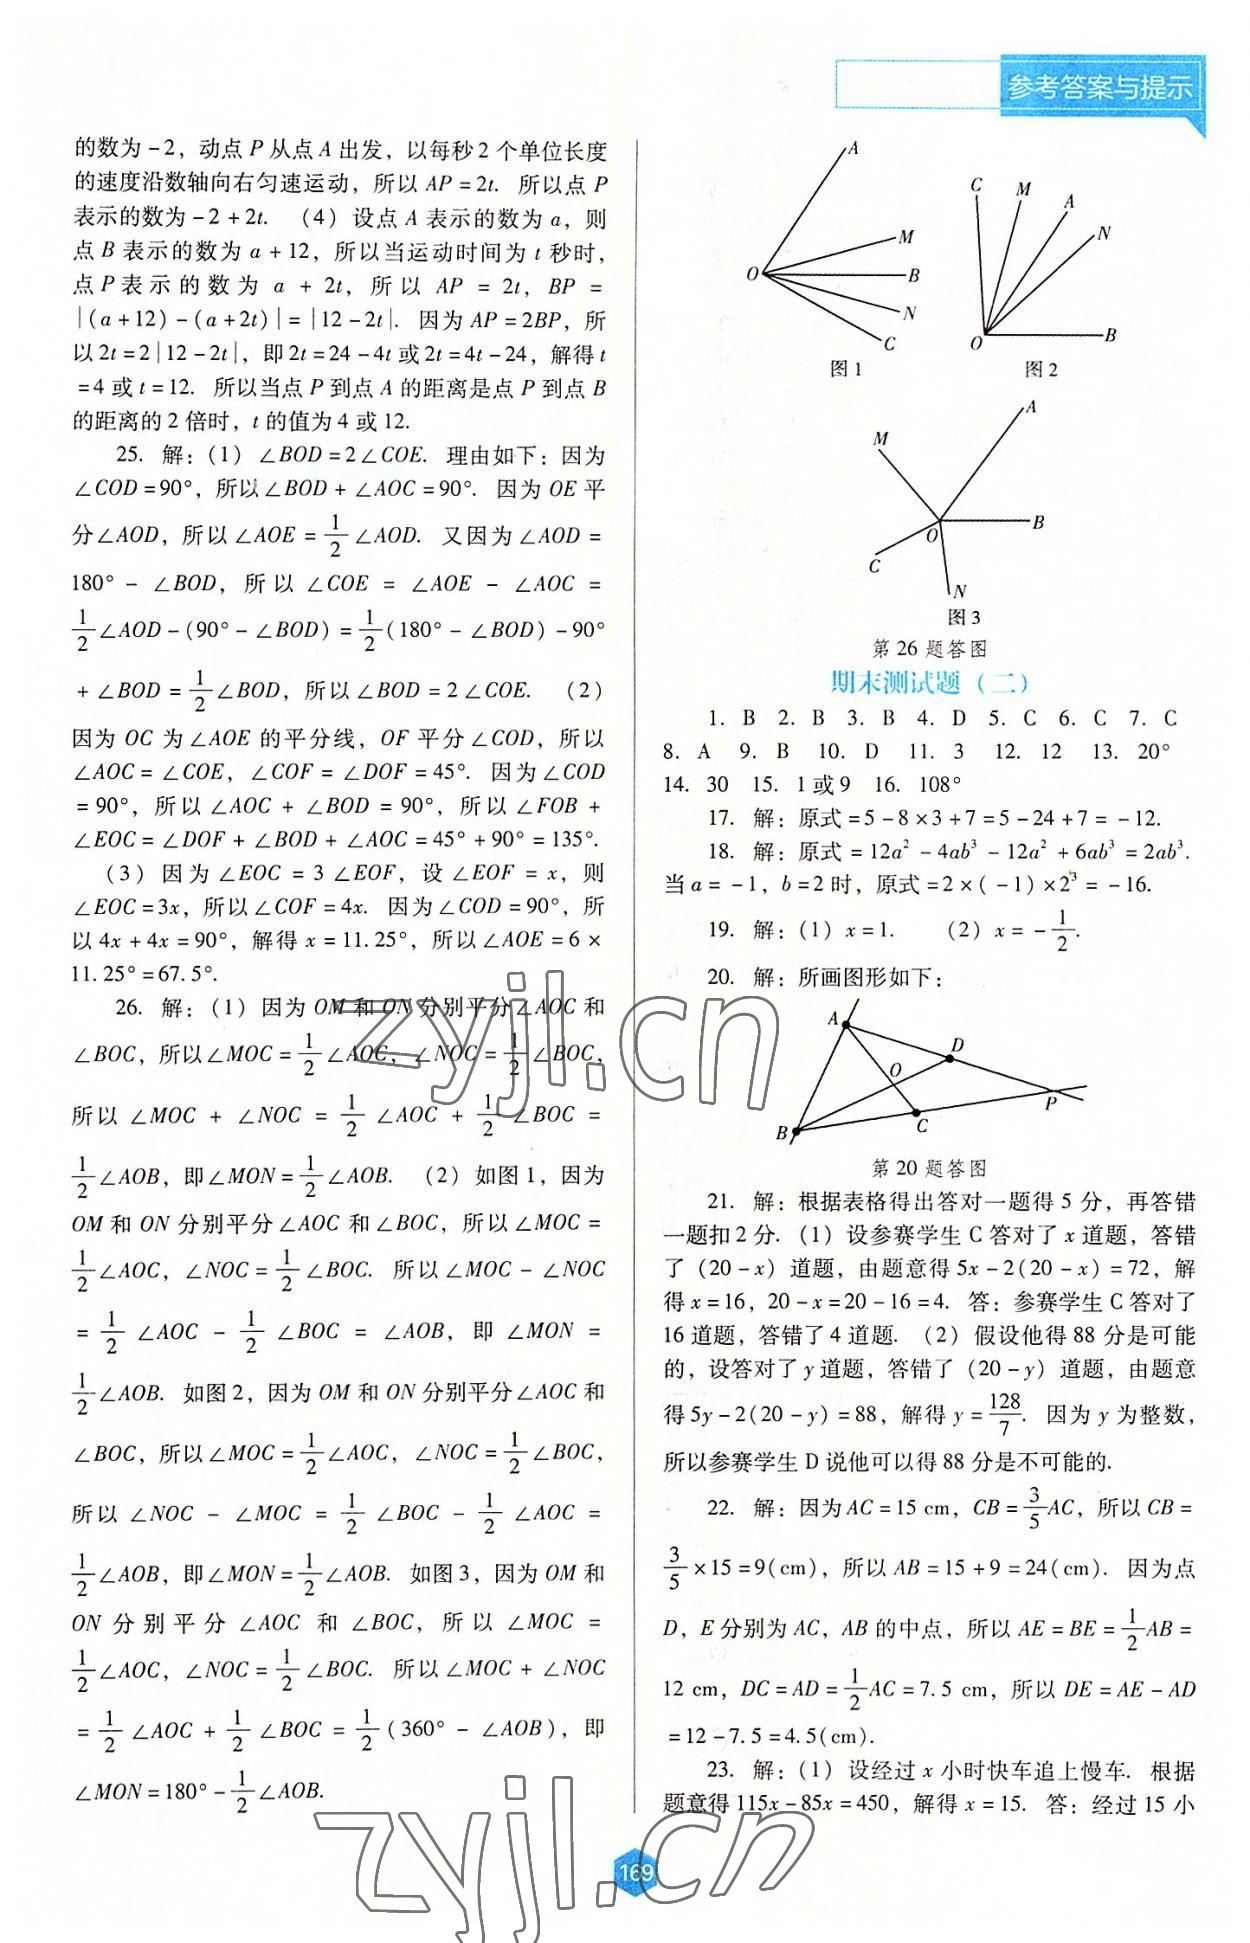 参考答案与提示
的数为-2，动点 P 从点 A 出发，以每秒 2 个单位长度
的速度沿数轴向右匀速运动，所以 AP=2t. 所以点 P
表示的数为-2+2t. （4）设点 A 表示的数为 a，则
点 B 表示的数为 a+12，所以当运动时间为 t 秒时，
点 P 表示的数为 a+2t，所以 AP=2t，BP=
|(a+12)-(a+2t)|=|12-2t|. 因为 AP=2BP，所
以 2t=2|12-2t|，即 2t=24-4t 或 2t=4t-24，解得 t
=4 或 t=12. 所以当点 P 到点 A 的距离是点 P 到点 B
的距离的 2 倍时，t 的值为 4 或 12.
25. 解：（1）∠BOD=2∠COE. 理由如下：因为
∠COD=90°，所以∠BOD+∠AOC=90°. 因为 OE 平
分∠AOD，所以∠AOE=1/2∠AOD. 又因为∠AOD=
180°-∠BOD，所以∠COE=∠AOE-∠AOC=
1/2∠AOD-(90°-∠BOD)=1/2(180°-∠BOD)-90°
+∠BOD=1/2∠BOD，所以∠BOD=2∠COE. （2）
因为 OC 为∠AOE 的平分线，OF 平分∠COD，所以
∠AOC=∠COE，∠COF=∠DOF=45°. 因为∠COD
=90°，所以∠AOC+∠BOD=90°，所以∠FOB+
∠EOC=∠DOF+∠BOD+∠AOC=45°+90°=135°.
（3）因为∠EOC=3∠EOF，设∠EOF=x，则
∠EOC=3x，所以∠COF=4x. 因为∠COD=90°，所
以 4x+4x=90°，解得 x=11.25°，所以∠AOE=6×
11.25°=67.5°.
26. 解：（1）因为 OM 和 ON 分别平分∠AOC 和
∠BOC，所以∠MOC=1/2∠AOC，∠NOC=1/2∠BOC，
所以∠MOC+∠NOC=1/2∠AOC+1/2∠BOC=
1/2∠AOB，即∠MON=1/2∠AOB. （2）如图 1，因为
OM 和 ON 分别平分∠AOC 和∠BOC，所以∠MOC=
1/2∠AOC，∠NOC=1/2∠BOC. 所以∠MOC-∠NOC
=1/2∠AOC-1/2∠BOC=∠AOB，即∠MON=
1/2∠AOB. 如图 2，因为 OM 和 ON 分别平分∠AOC 和
∠BOC，所以∠MOC=1/2∠AOC，∠NOC=1/2∠BOC，
所以∠NOC-∠MOC=1/2∠BOC-1/2∠AOC=
1/2∠AOB，即∠MON=1/2∠AOB. 如图 3，因为 OM 和
ON 分别平分∠AOC 和∠BOC，所以∠MOC=
1/2∠AOC，∠NOC=1/2∠BOC. 所以∠MOC+∠NOC
=1/2∠AOC+1/2∠BOC=1/2(360°-∠AOB)，即
∠MON=180°-1/2∠AOB.
A
M
O
B
N
C
图 1
C
M
A
N
O
B
图 2
A
M
B
O
C
N
图 3
第 26 题答图
期末测试题（二）
1. B 2. B 3. B 4. D 5. C 6. C 7. C
8. A 9. B 10. D 11. 3 12. 12 13. 20°
14. 30 15. 1 或 9 16. 108°
17. 解：原式=5-8×3+7=5-24+7=-12.
18. 解：原式=12a²-4ab³-12a²+6ab³=2ab³.
当 a=-1，b=2 时，原式=2×(-1)×2³=-16.
19. 解：（1）x=1. （2）x=-1/2.
20. 解：所画图形如下：
A
D
O
P
B
C
第 20 题答图
21. 解：根据表格得出答对一题得 5 分，再答错
一题扣 2 分.（1）设参赛学生 C 答对了 x 道题，答错
了（20-x）道题，由题意得 5x-2(20-x)=72，解
得 x=16，20-x=20-16=4. 答：参赛学生 C 答对了
16 道题，答错了 4 道题. （2）假设他得 88 分是可能
的，设答对了 y 道题，答错了（20-y）道题，由题意
得 5y-2(20-y)=88，解得 y=128/7. 因为 y 为整数，
所以参赛学生 D 说他可以得 88 分是不可能的.
22. 解：因为 AC=15 cm，CB=3/5AC，所以 CB=
3/5×15=9(cm)，所以 AB=15+9=24(cm). 因为点
D，E 分别为 AC，AB 的中点，所以 AE=BE=1/2AB=
12 cm，DC=AD=1/2AC=7.5 cm，所以 DE=AE-AD
=12-7.5=4.5(cm).
23. 解：（1）设经过 x 小时快车追上慢车. 根据
题意得 115x-85x=450，解得 x=15. 答：经过 15 小
169
zyjl.cn
zyjl.cn